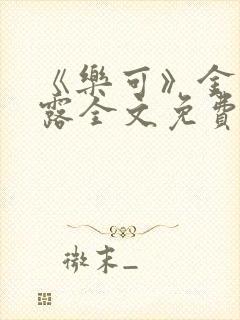 《樂可》金
露全文免費
微末_